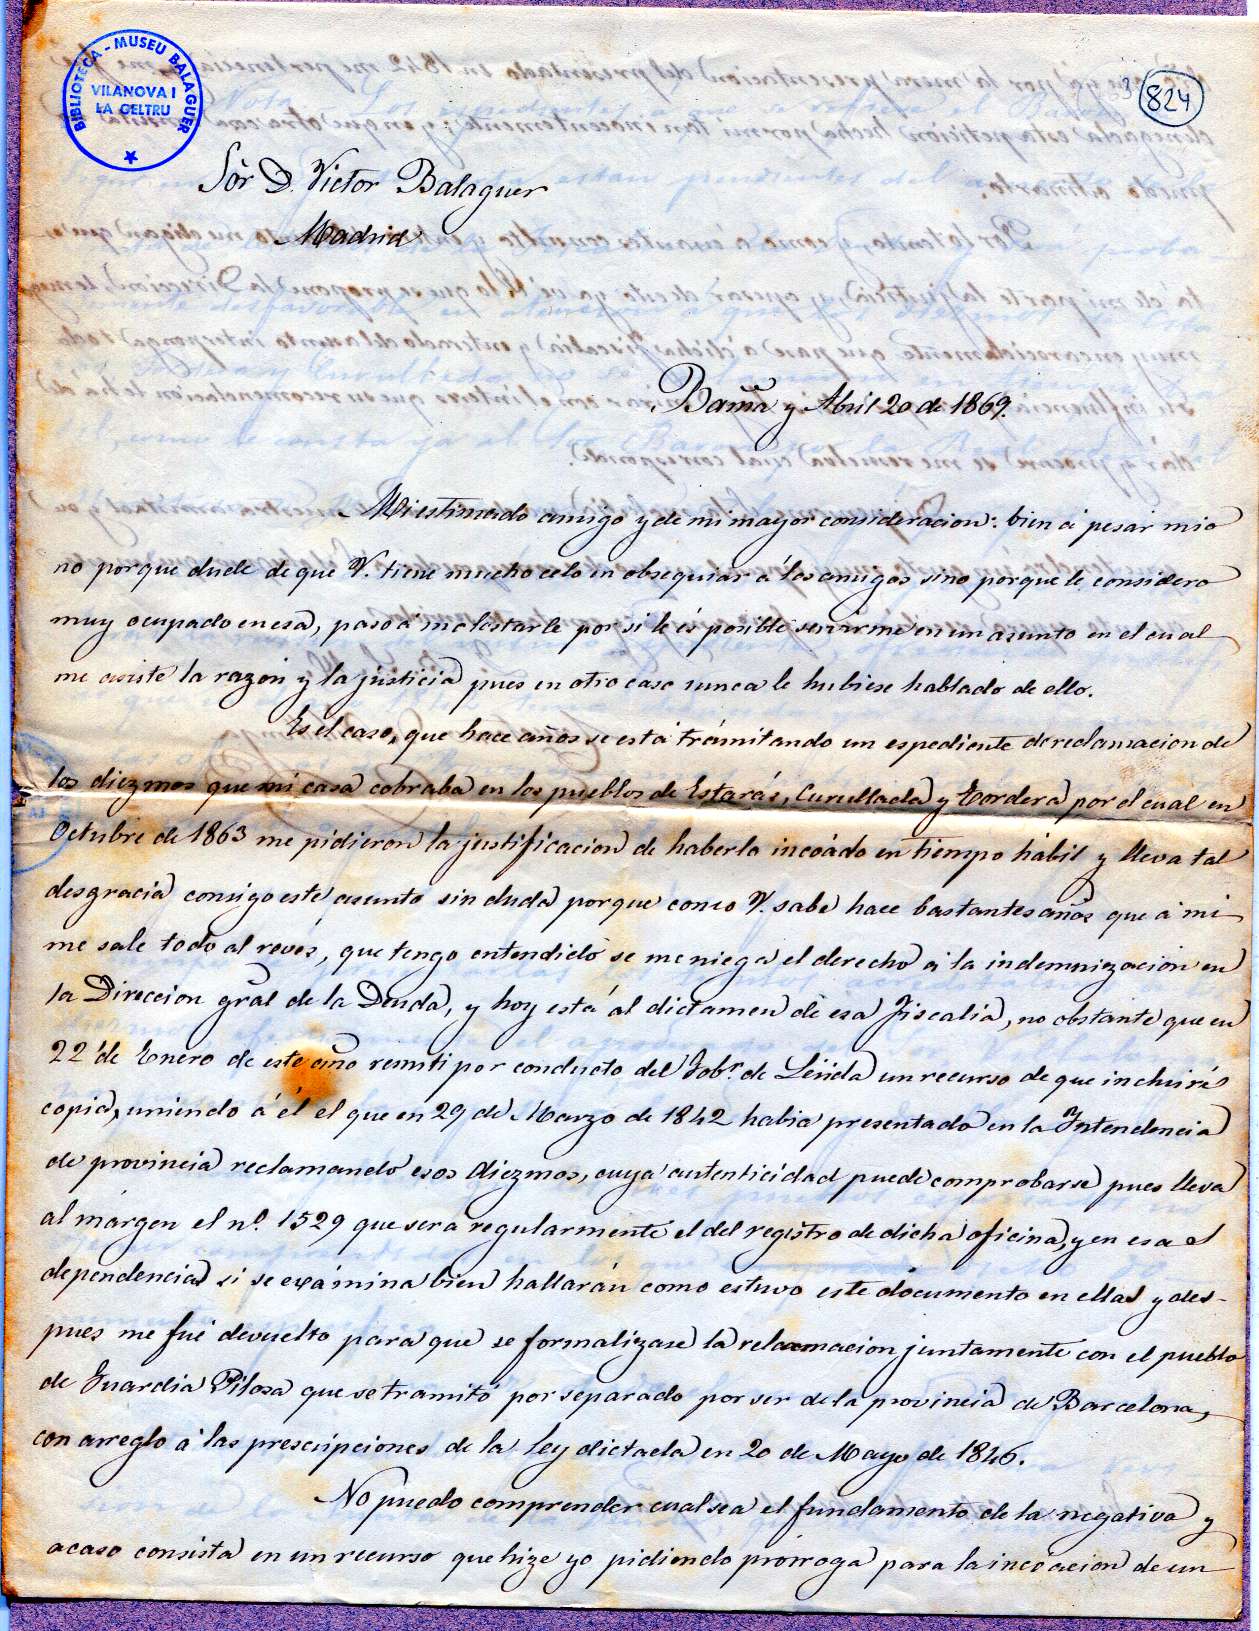 BIBLIOTECA - MUSEU BALAGUER
VILANOVA I
LA GELTRU
824
Sòr D. Victor Balaguer
Madrid
Barna y Abril 20 de 1869.
Mi estimado amigo y de mi mayor consideracion: bien á pesar mio
no porque dude de que V. tiene mucho celo en obsequiar á los amigos sino porque le considero
muy ocupado en esa, paso á molestarle por si le és posible servirme en un asunto en el cual
me asiste la razon y la justicia pues en otro caso nunca le hubiese hablado de ello.
Es el caso, que hace años se está trámitando un espediente de reclamacion de
los diezmos que mi casa cobraba en los pueblos de Estarás, Curullada y Tordera por el cual en
Octubre de 1863 me pidieron la justificacion de haberlo incoádo en tiempo hábil y lleva tal
desgracia consigo este asunto sin duda porque como V. sabe hace bastantes años que á mi
me sale todo al revés, que tengo entendido se me niega el derecho á la indemnizacion en
la Direccion gral de la Deuda, y hoy está al dictamen de esa Fiscalia, no obstante que en
22 de Enero de este año remiti por conducto del Gobr. de Lérida un recurso de que incluiré
copia, uniendo á él el que en 29 de Marzo de 1842 habia presentado en la Intendencia
de provincia reclamando esos diezmos, cuya autenticidad puede comprobarse pues lleva
al márgen el nº. 1529 que sera regularmente el del registro de dicha oficina, y en esa
dependencia si se exámina bien hallarán como estuvo este documento en ellas y des-
pues me fué devuelto para que se formalizase la reclamacion juntamente con el pueblo
de Guardia Pilosa que se tramitó por separado por ser de la provincia de Barcelona,
con arreglo á las prescripciones de la ley dictada en 20 de Mayo de 1846.
No puedo comprender cual sea el fundamento de la negativa y
acaso consista en un recurso que hize yo pidiendo prorroga para la incoacion de un